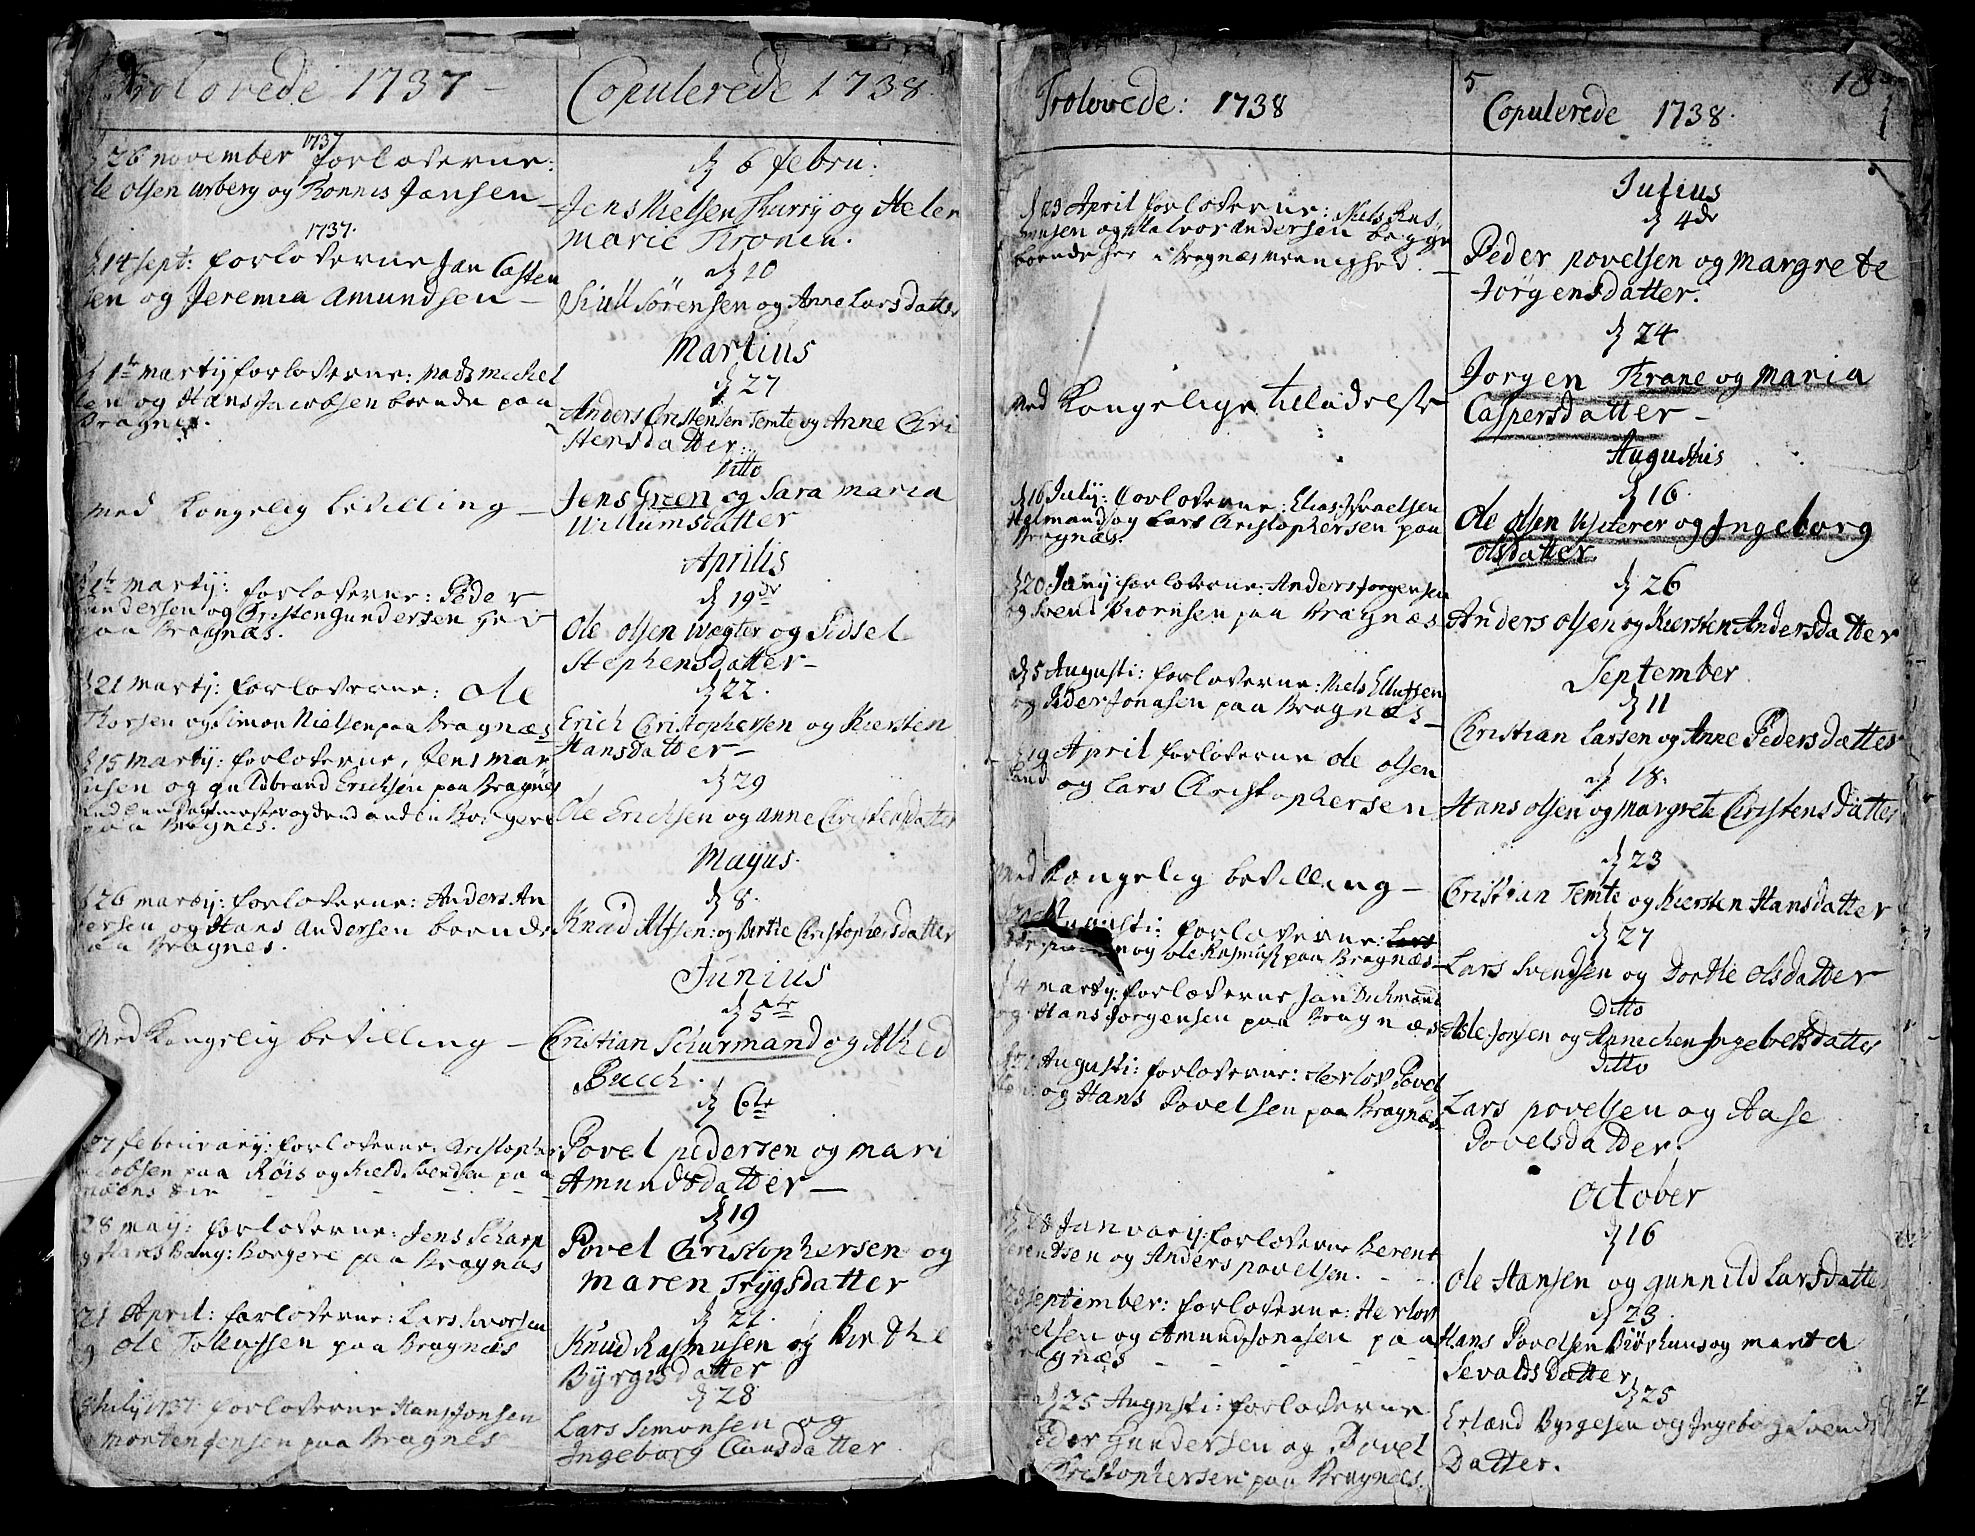 Trolovede 1737 –
26 november 1737 forloverne:
Ole olsen urberg og Tonnis Jansen –
1737.
14 sept: forloverne Jan Casten
sen og Jeremia Amundsen –
1te martij forloverne: mads mickel
sen og Hans Jacobsen boende paa
Bragnes.
med Kongelig bevilling –
1te martij: forloverne: Peder
Gundersen og Christen gundersen
paa Bragnæs.
21 martij: forloverne: Ole
Thorsen og Simon Nielsen paa Bragnæs
15 martij: forloverne, Jens mar
og guldbrand Ericksen paa Bragnes
og dend anden Borgere
paa Bragnes.
26 martij: forloverne: Anders An
dersen og Hans Andersen boende
paa Bragnes.
Med Kongelig bevilling –
27 februarij: forloverne: Christopher
Jacobsen paa Röis og Kield Svendsen paa
28 maij: forloverne: Jens Scharp
og Hans Bang: Borgere paa Bragnæs
21 April: forloverne: Lars Iworsen
og Ole Tollufsen paa Bragnæs
Julij 1737 forloverne Hans Jonsen
morten Jensen paa Bragnes
Copulerede 1738.
d 6 febru:
Jens Nielsen Thurry og Helen
marie Kronin.
d 20
Siull Sörensen og Anne Larsdatter
Martius
d 27
Anders Christensen Temte og Anne Chri
stensdatter.
Ditto
Jens Green og Sara maria
Willumsdatter
Aprilis
d 19de
Ole olsen wægter og Sidsel
Stephensdatter –
d 22.
Erich Christophersen og Kiersten
Hansdatter –
d 29
Ole Ericksen og anne Christensdatter
Mayus.
d 8.
Knud Alfsen: og Berthe Christophersdatter
Junius
d 5te
Christian Schurmand og Alhed
Buech.
d 6te
Povel pedersen og mari
Amundsdatter –
d 19
Povel Christophersen og
maren Trygsdatter
d 22.
Knud Rasmusen og Birthe
Byrgisdatter
d 28
Lars Simonsen og
Ingeborg Clausdatter
Trolovede: 1738
d 23 April forloverne: Niels Ras
musen og Halvor andersen begge
boende her i Bragnæs meenighed. –
med Kongelige tilladelse
d 16 Julij: forloverne: Elias Israelsen
Helmand og Lars Christophersen paa
Bragnæs.
d 20 Juny: forloverne: Anders Jorgensen
og Svend Biörnsen paa Bragnæs
d 5 Augusti: forloverne: Niels Ellufsen
og Peder Jonasen paa Bragnæs –
19 April forloverne ole olsen
og Lars Christophersen
Med Kongelig bevilling –
Augusti: forloverne:
og ole Rasmusß paa Bragnæs –
4 martij: forloverne Jan Dichmand
og Hans Jorgensen paa Bragnæs
Augusti: forloverne: Herlof Povel
sen: og Hans Povelsen paa Bragnæs
28 Janvarij: forloverne Berent
Berendtsen og Anders povelsen.
september: forloverne: Herlof
Povelsen og Amund Jonasen paa
Bragnæs
d 25 Augusti: forloverne
Peder gundersen og Povel
Christophersen paa Bragnæs.
5
18
Copulerede 1738.
Julius
d 4de
Peder povelsen og margrete
Jörgensdatter.
d 24
Jorgen Krane og maria
Caspersdatter –
Augustus
d 16.
Ole olsen og Ingeborg
olsdatter
d 26
Anders olsen og Kiersten Andersdatter
September
d 11
Christian Larsen og Anne Pedersdatter
d 18.
Hans olsen og margrete Christensdatter
d 23
Christian Temte og Kiersten Hansdatter
d 27
Lars Svendsen og Dorthe olsdatter
Ditto
Asle Jonsen og Annichen Ingebretsdatter
Ditto
Lars povelsen og Aase
Povelsdatter.
October
d 16
Ole Hansen og gunnild Larsdatter
d 23.
Hans Povelsen Biörhuus og marta
Sevaldsdatter
d 25
Erland Byrgesen og Ingeborg Svends
Datter.